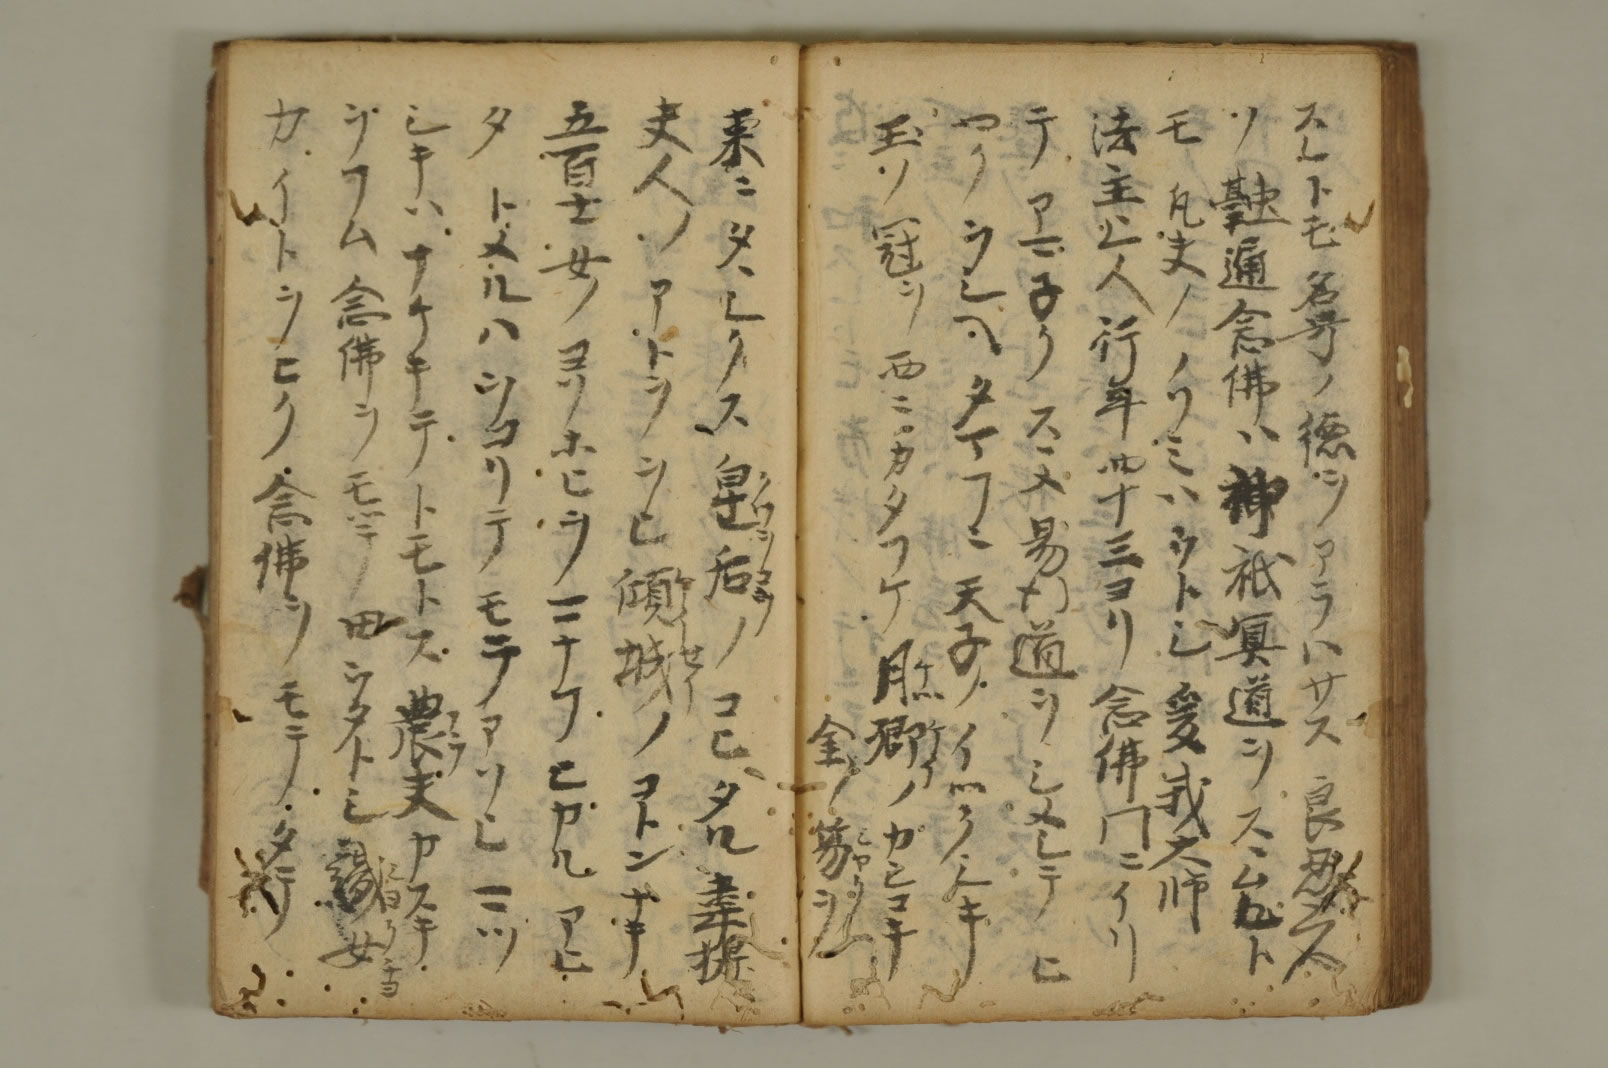 スレトモ名号ノ徳ヲアラハサス良忍ス
ソ融通念佛ハ神祇冥道ヲスヽムレト
モ凡夫ノノソミハウトシ爰我大師
法主上人行年四十三ヨリ念佛門ニイリ
テアマ子クスヽメ易行道ヲシメシテヒ
ロクヲシヘタマフニ天子ノイツクシキ
玉ノ冠ヲ西ニカタフケ月卿ノカシコキ
金ノ笏ヲ
東ニタヽシクス皇后ノコヒタル韋提
夫人ノアトヲシヒ傾城ノコトンナキ
五百士女ノヨソホヒヲマナフヒカルアヒ
タトメルハヲコリテモテアソヒマツ
シキハナケキテトモトス農夫カスキ
ヲフム念佛ヲモテ田ウタトシ女
カイトヲヒク念佛ヲモテタテ